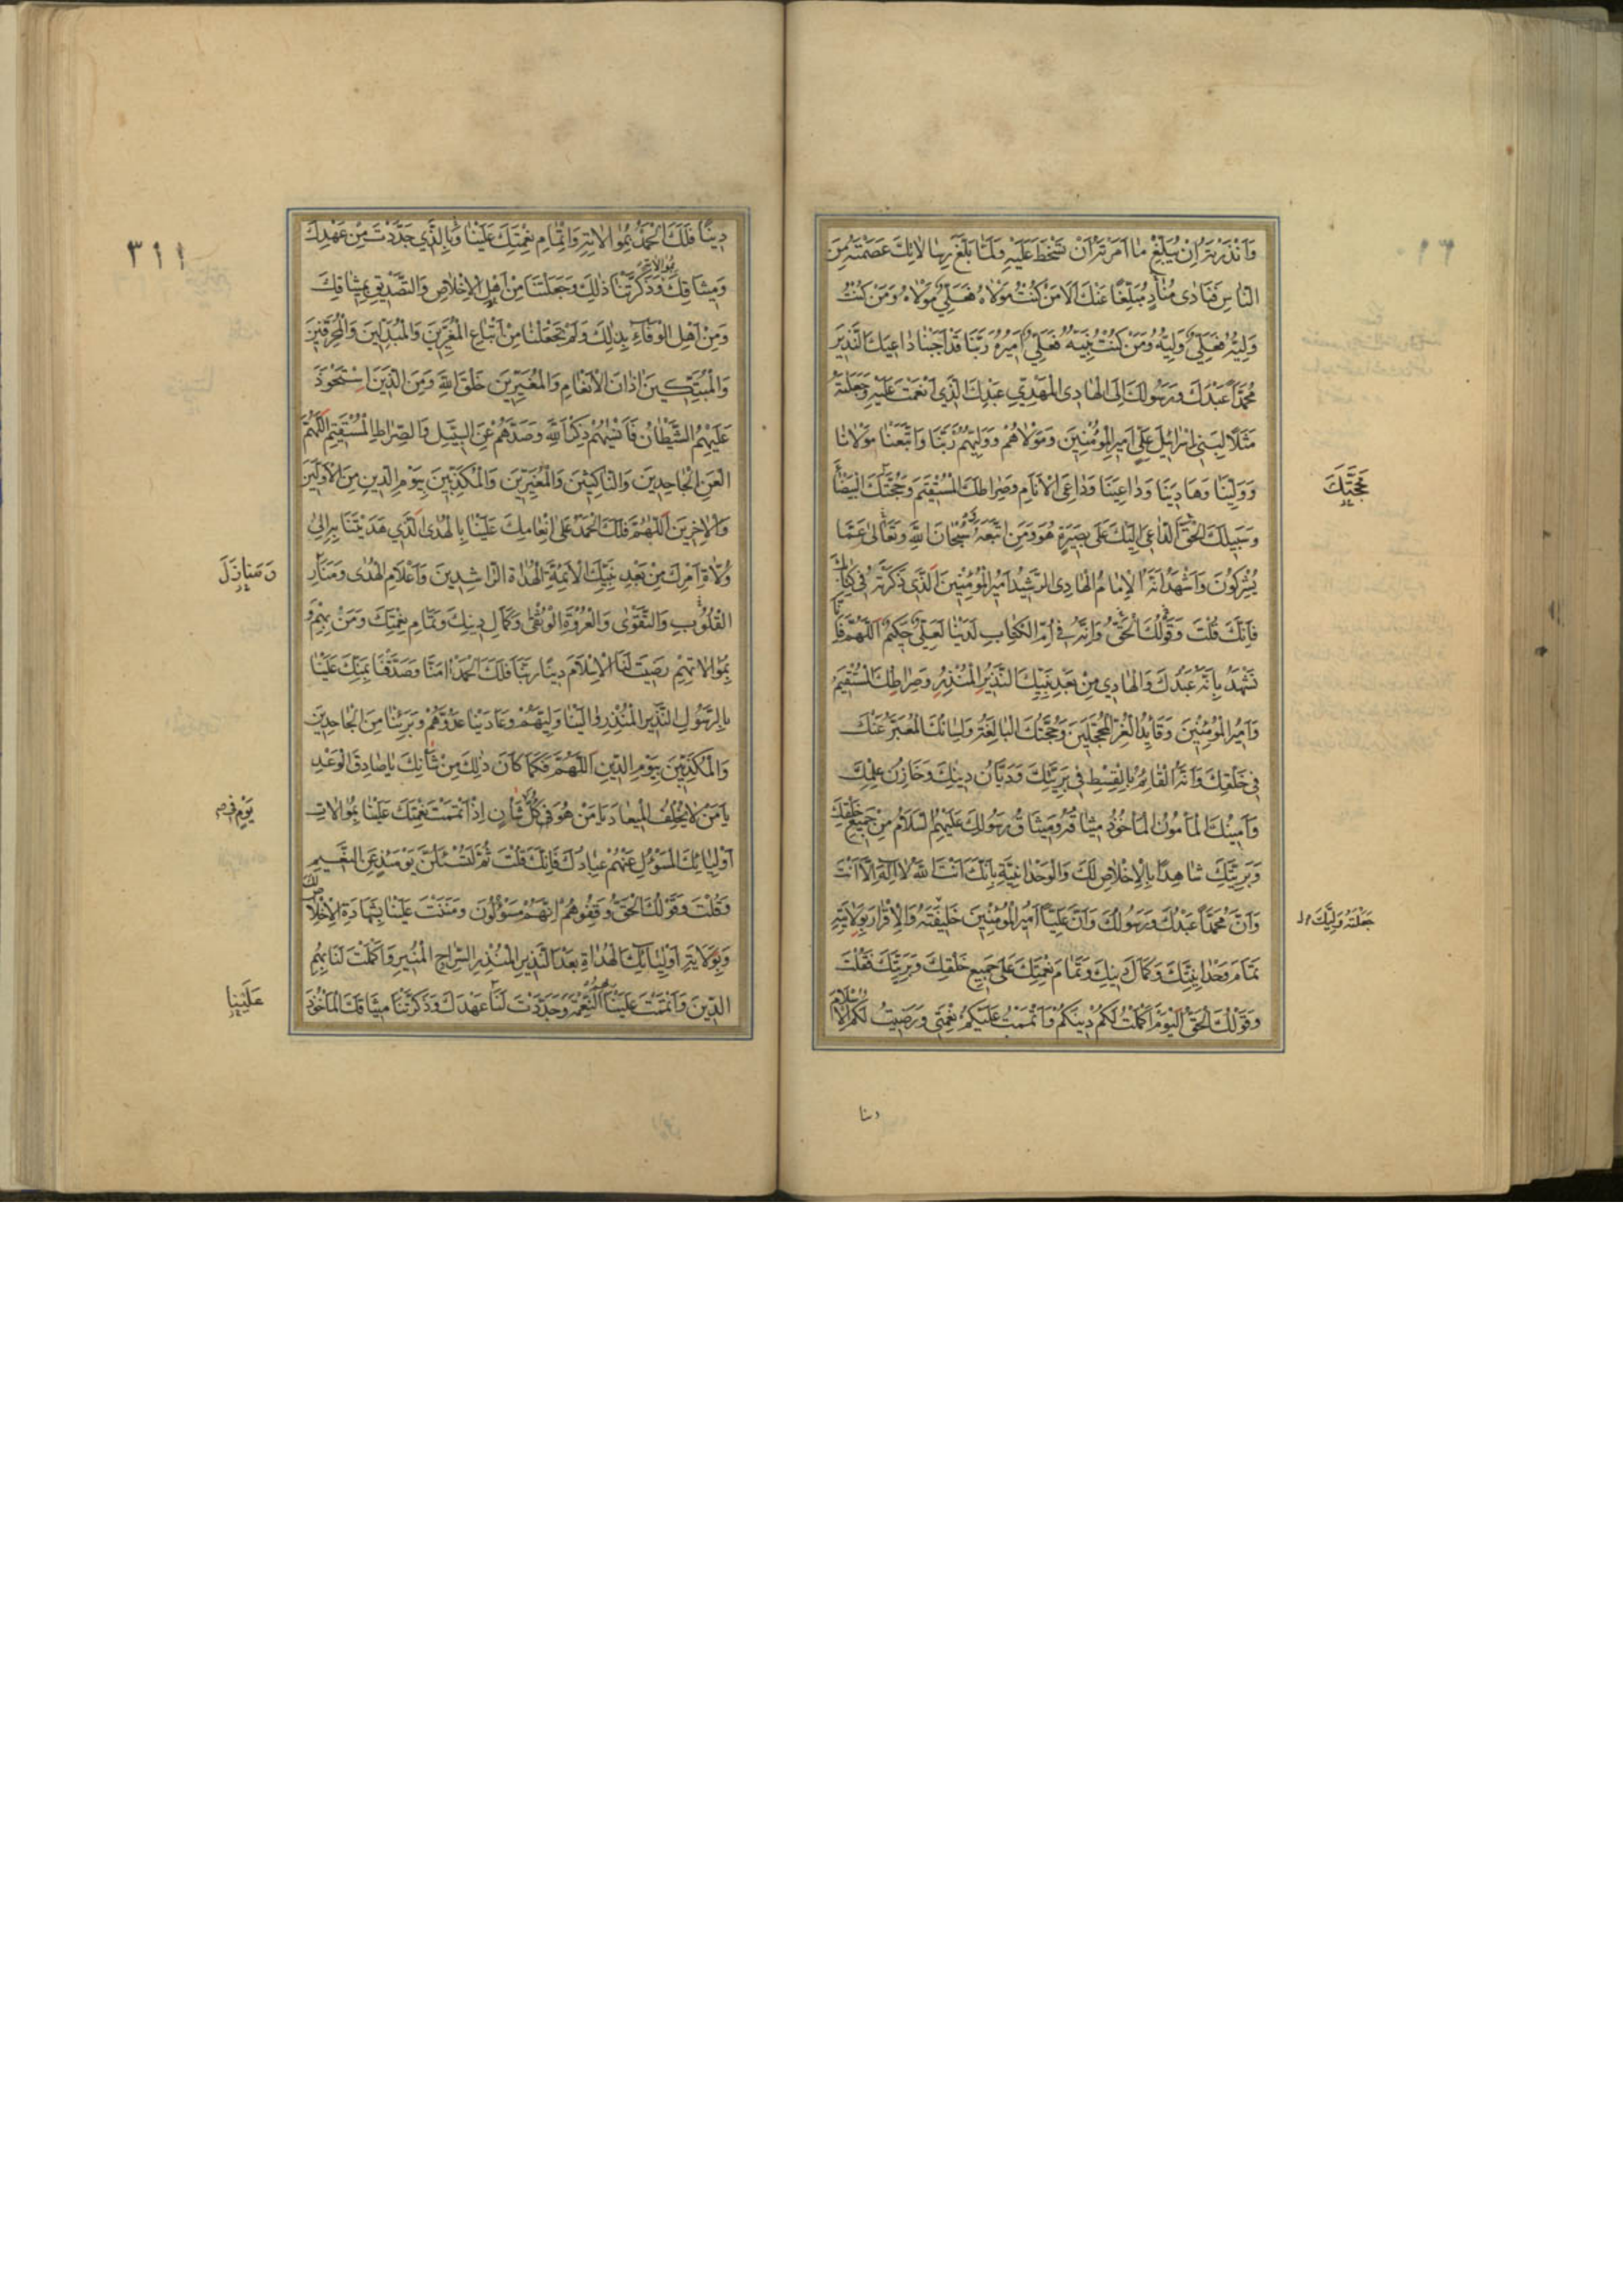 وَاَنْذَرْتَهُ اِنْ لَمْ يُبَلِّغْ مَا اَمَرْتَهُ اَنْ تَسْخَطَ عَلَيْهِ فَلَمَّا بَلَّغَ رِسَالَاتِكَ عَصَمْتَهُ مِنَ
النَّاسِ فَنَادٰى مُنَادٍ مُبَلِّغًا عَنْكَ اَلَا مَنْ كُنْتُ مَوْلَاهُ فَعَلِيٌّ مَوْلَاهُ وَمَنْ كُنْتُ
وَلِيَّهُ فَعَلِيٌّ وَلِيُّهُ وَمَنْ كُنْتُ نَبِيَّهُ فَعَلِيٌّ اَمِيرُهُ رَبَّنَا قَدْ اَجَبْنَا دَاعِيَكَ النَّذِيرَ
مُحَمَّدًا عَبْدَكَ وَرَسُولَكَ اِلَى الْهَادِى الْمَهْدِيِّ عَبْدِكَ الَّذِي اَنْعَمْتَ عَلَيْهِ وَجَعَلْتَهُ
مَثَلًا لِبَنِي اِسْرَائِيلَ عَلِيٍّ اَمِيرِ الْمُؤْمِنِينَ وَمَوْلَاهُمْ وَوَلِيِّهِمْ رَبَّنَا وَاتَّبَعْنَا مَوْلَانَا
وَوَلِيَّنَا وَهَادِيَنَا وَدَاعِيَنَا وَدَاعِيَ الْاَنَامِ وَصِرَاطَكَ الْمُسْتَقِيمَ وَحُجَّتَكَ الْبَيْضَاءَ
مَحَجَّتَكَ
وَسَبِيلَكَ الْحَقَّ الدَّاعِيَ اِلَيْكَ عَلَى بَصِيرَةٍ هُوَ وَمَنِ اتَّبَعَهُ سُبْحَانَ اللهِ وَتَعَالٰى عَمَّا
يُشْرِكُونَ وَاَشْهَدُ اَنَّهُ الْاِمَامُ الْهَادِى الرَّشِيدُ اَمِيرُ الْمُؤْمِنِينَ الَّذِى ذَكَرْتَهُ فِى كِتَابِكَ
فَاِنَّكَ قُلْتَ وَقَوْلُكَ الْحَقُّ وَاِنَّهُ فِى اُمِّ الْكِتَابِ لَدَيْنَا لَعَلِيٌّ حَكِيمٌ اَللّٰهُمَّ فَاِنَّا
نَشْهَدُ بِاَنَّهُ عَبْدُكَ وَالْهَادِي مِنْ بَعْدِ نَبِيِّكَ النَّذِيرُ الْمُنْذِرُ وَصِرَاطُكَ الْمُسْتَقِيمُ
وَاَمِيرُ الْمُؤْمِنِينَ وَقَائِدُ الْغُرِّ الْمُحَجَّلِينَ وَحُجَّتُكَ الْبَالِغَةُ وَلِسَانُكَ الْمُعَبِّرُ عَنْكَ
فِي خَلْقِكَ وَاَنَّهُ الْقَائِمُ بِالْقِسْطِ فِي بَرِيَّتِكَ وَدَيَّانُ دِينِكَ وَخَازِنُ عِلْمِكَ
وَاَمِينُكَ الْمَأْمُونُ الْمَأْخُوذُ مِيثَاقُهُ وَمِيثَاقُ رَسُولِكَ عَلَيْهِمُ السَّلَامُ مِنْ جَمِيعِ خَلْقِكَ
وَبَرِيَّتِكَ شَاهِدًا بِالْاِخْلَاصِ لَكَ وَالْوَحْدَانِيَّةِ بِاَنَّكَ اَنْتَ اللهُ لَا اِلٰهَ اِلَّا اَنْتَ
وَاَنَّ مُحَمَّدًا عَبْدُكَ وَرَسُولُكَ وَاَنَّ عَلِيًّا اَمِيرُ الْمُؤْمِنِينَ خَلِيفَتُهُ وَالْاِقْرَارَ بِوِلَايَتِهِ
جَعَلْتَهُ وَلِيَّكَ
تَمَامَ وَحْدَانِيَّتِكَ وَكَمَالَ دِينِكَ وَتَمَامَ نِعْمَتِكَ عَلَى جَمِيعِ خَلْقِكَ وَبَرِيَّتِكَ فَقُلْتَ
وَقَوْلُكَ الْحَقُّ اَلْيَوْمَ اَكْمَلْتُ لَكُمْ دِينَكُمْ وَاَتْمَمْتُ عَلَيْكُمْ نِعْمَتِي وَرَضِيتُ لَكُمُ الْاِسْلَامَ
دينا
٣١١
دِينًا فَلَكَ الْحَمْدُ بِمُوَالَاتِهِ وَاِتْمَامِ نِعْمَتِكَ عَلَيْنَا وَبِالَّذِي جَدَّدْتَ مِنْ عَهْدِكَ
وَمِيثَاقِكَ وَذَكَّرْتَنَا ذٰلِكَ وَجَعَلْتَنَا مِنْ اَهْلِ الْاِخْلَاصِ وَالتَّصْدِيقِ بِمِيثَاقِكَ
وَمِنْ اَهْلِ الْوَفَاءِ بِذٰلِكَ وَلَمْ تَجْعَلْنَا مِنْ اَتْبَاعِ الْمُغَيِّرِينَ وَالْمُبَدِّلِينَ وَالْمُحَرِّفِينَ
وَالْمُبَتِّكِينَ اٰذَانَ الْاَنْعَامِ وَالْمُغَيِّرِينَ خَلْقَ اللهِ وَمِنَ الَّذِينَ اسْتَحْوَذَ
عَلَيْهِمُ الشَّيْطَانُ فَاَنْسٰيهُمْ ذِكْرَ اللهِ وَصَدَّهُمْ عَنِ السَّبِيلِ وَالصِّرَاطِ الْمُسْتَقِيمِ اَللّٰهُمَّ
الْعَنِ الْجَاحِدِينَ وَالنَّاكِثِينَ وَالْمُغَيِّرِينَ وَالْمُكَذِّبِينَ بِيَوْمِ الدِّينِ مِنَ الْاَوَّلِينَ
وَالْاٰخِرِينَ اَللّٰهُمَّ فَلَكَ الْحَمْدُ عَلَى اِنْعَامِكَ عَلَيْنَا بِالْهُدَى الَّذِي هَدَيْتَنَا بِهِ اِلٰى
وُلَاةِ اَمْرِكَ مِنْ بَعْدِ نَبِيِّكَ الْاَئِمَّةِ الْهُدَاةِ الرَّاشِدِينَ وَاَعْلَامِ الْهُدٰى وَمَنَارِ
وَمَنَازِلَ
الْقُلُوبِ وَالتَّقْوٰى وَالْعُرْوَةِ الْوُثْقٰى وَكَمَالِ دِينِكَ وَتَمَامِ نِعْمَتِكَ وَمَنْ بِهِمْ وَ
بِمُوَالَاتِهِمْ رَضِيتَ لَنَا الْاِسْلَامَ دِينًا رَبَّنَا فَلَكَ الْحَمْدُ اٰمَنَّا وَصَدَّقْنَا بِمَنِّكَ عَلَيْنَا
بِالرَّسُولِ النَّذِيرِ الْمُنْذِرِ وَالَيْنَا وَلِيَّهُمْ وَعَادَيْنَا عَدُوَّهُمْ وَبَرِئْنَا مِنَ الْجَاحِدِينَ
وَالْمُكَذِّبِينَ بِيَوْمِ الدِّينِ اَللّٰهُمَّ فَكَمَا كَانَ ذٰلِكَ مِنْ شَأْنِكَ يَا صَادِقَ الْوَعْدِ
يَا مَنْ لَا يُخْلِفُ الْمِيعَادَ يَا مَنْ هُوَ فِي كُلِّ شَأْنٍ اِذْ اَتْمَمْتَ نِعْمَتَكَ عَلَيْنَا بِمُوَالَاتِ
يَوْمٍ فِي
اَوْلِيَائِكَ الْمَسْؤُلِ عَنْهُمْ عِبَادُكَ فَاِنَّكَ قُلْتَ ثُمَّ لَتُسْئَلُنَّ يَوْمَئِذٍ عَنِ النَّعِيمِ
وَقُلْتَ وَقَوْلُكَ الْحَقُّ وَقِفُوهُمْ اِنَّهُمْ مَسْؤُلُونَ وَمَنَنْتَ عَلَيْنَا بِشَهَادَةِ الْاِخْلَاصِ لَكَ
وَبِوَلَايَةِ اَوْلِيَائِكَ الْهُدَاةِ بَعْدَ النَّذِيرِ الْمُنْذِرِ السِّرَاجِ الْمُنِيرِ وَاَكْمَلْتَ لَنَا بِهِمُ
الدِّينَ وَاَتْمَمْتَ عَلَيْنَا النِّعْمَةَ وَجَدَّدْتَ لَنَا عَهْدَكَ وَذَكَّرْتَنَا مِيثَاقَكَ الْمَأْخُوذَ
عَلَيْنَا